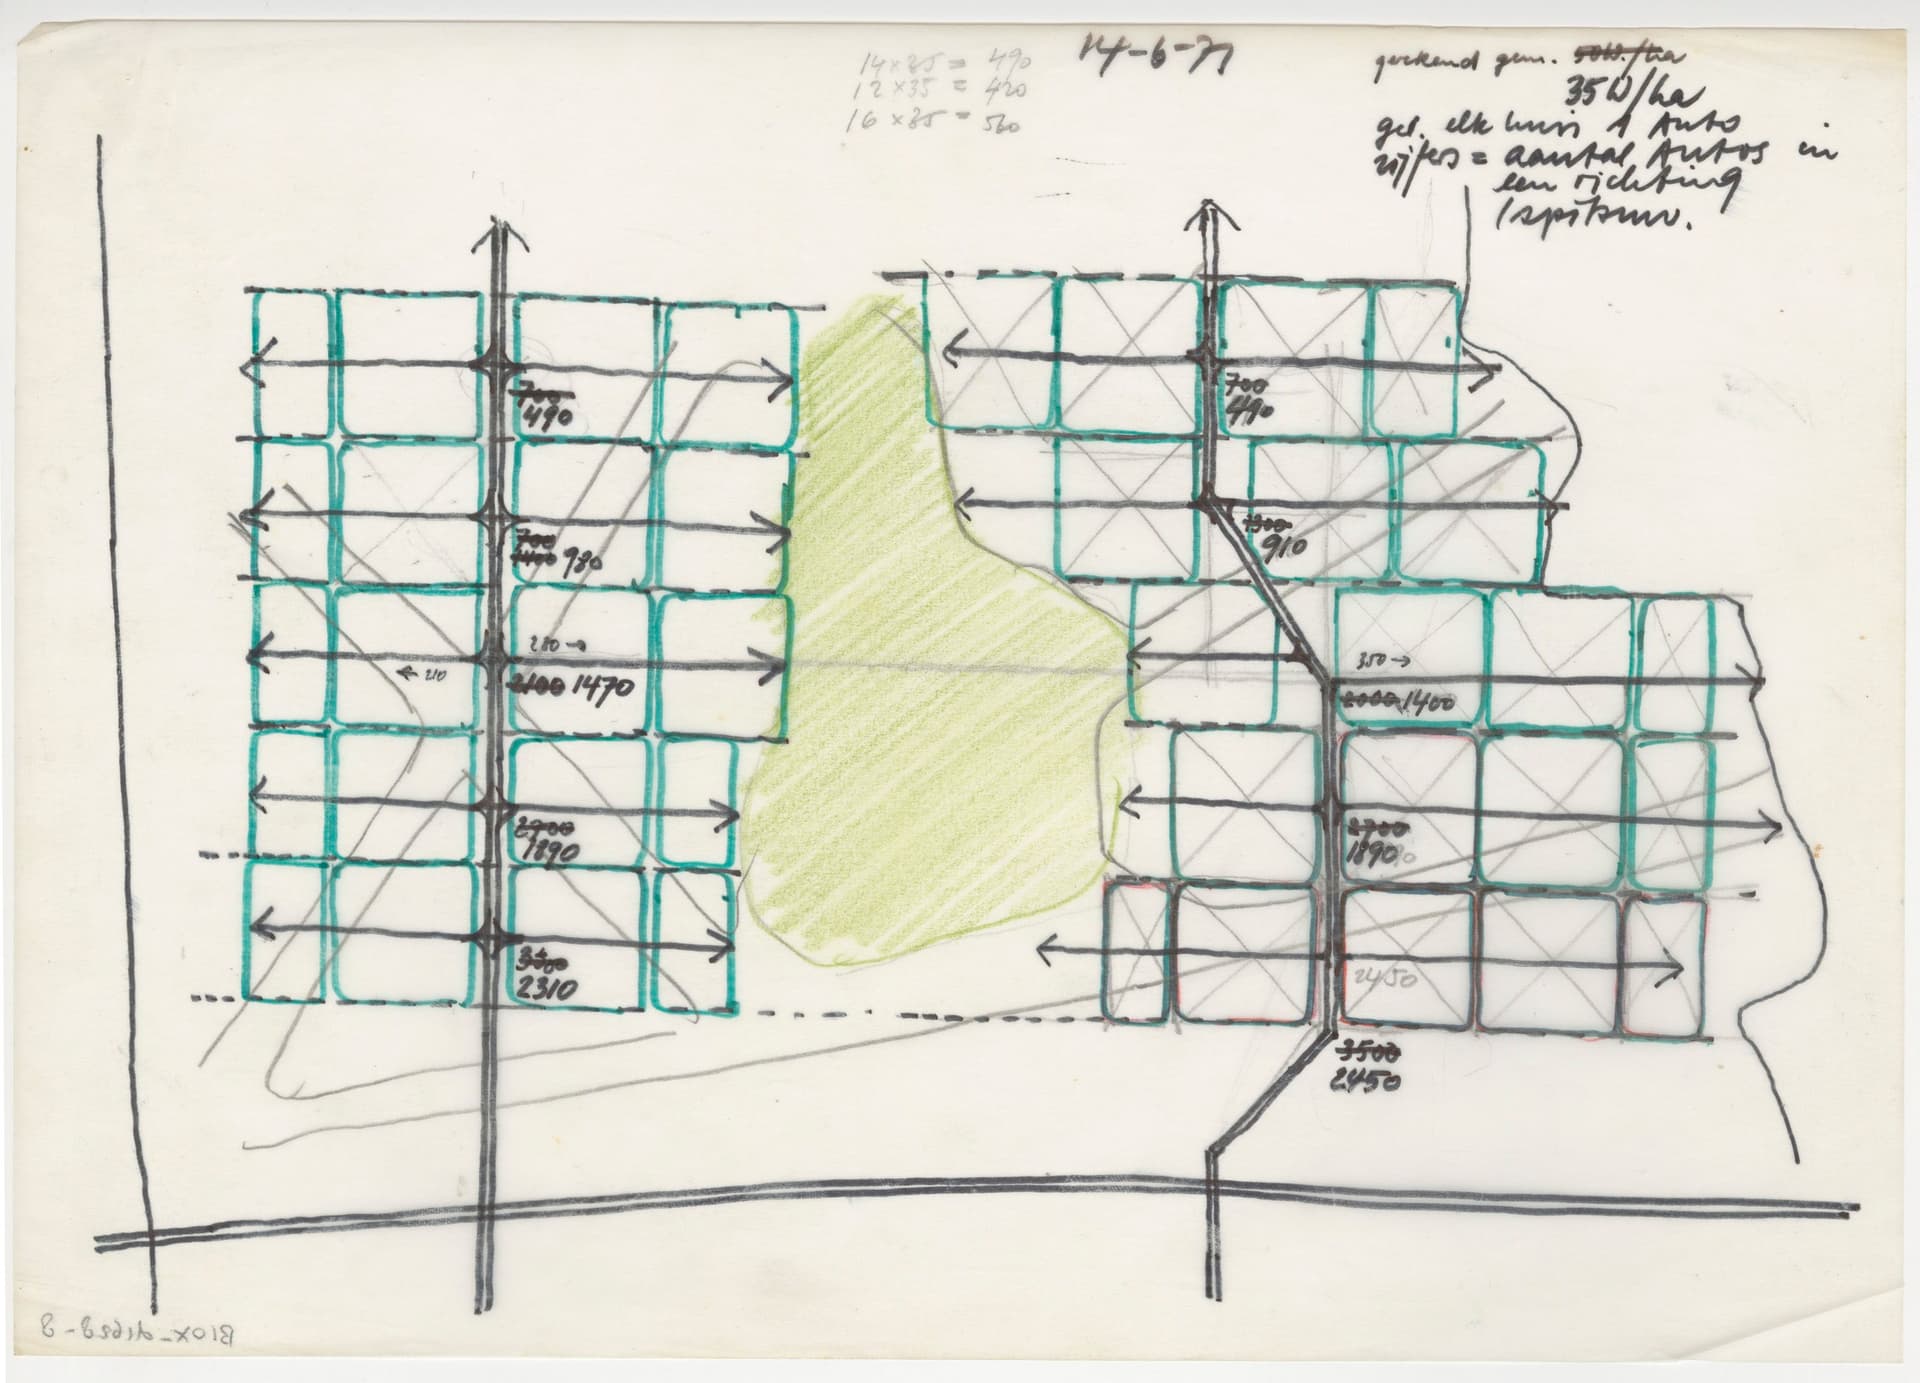 14×35 = 490
12×35 = 420
16×35 = 560
14-6-71
gerekend gem. 50W./ha
35W/ha
gel. elk huis 1 Auto
cijfers = aantal Autos in
een richting
/spitsuur.
700
490
700
1400 980
280→
←210
2100 1470
2700
1890
3300
2310
700
490
1300
910
350→
2000 1400
2700
1890
2450
3500
2450